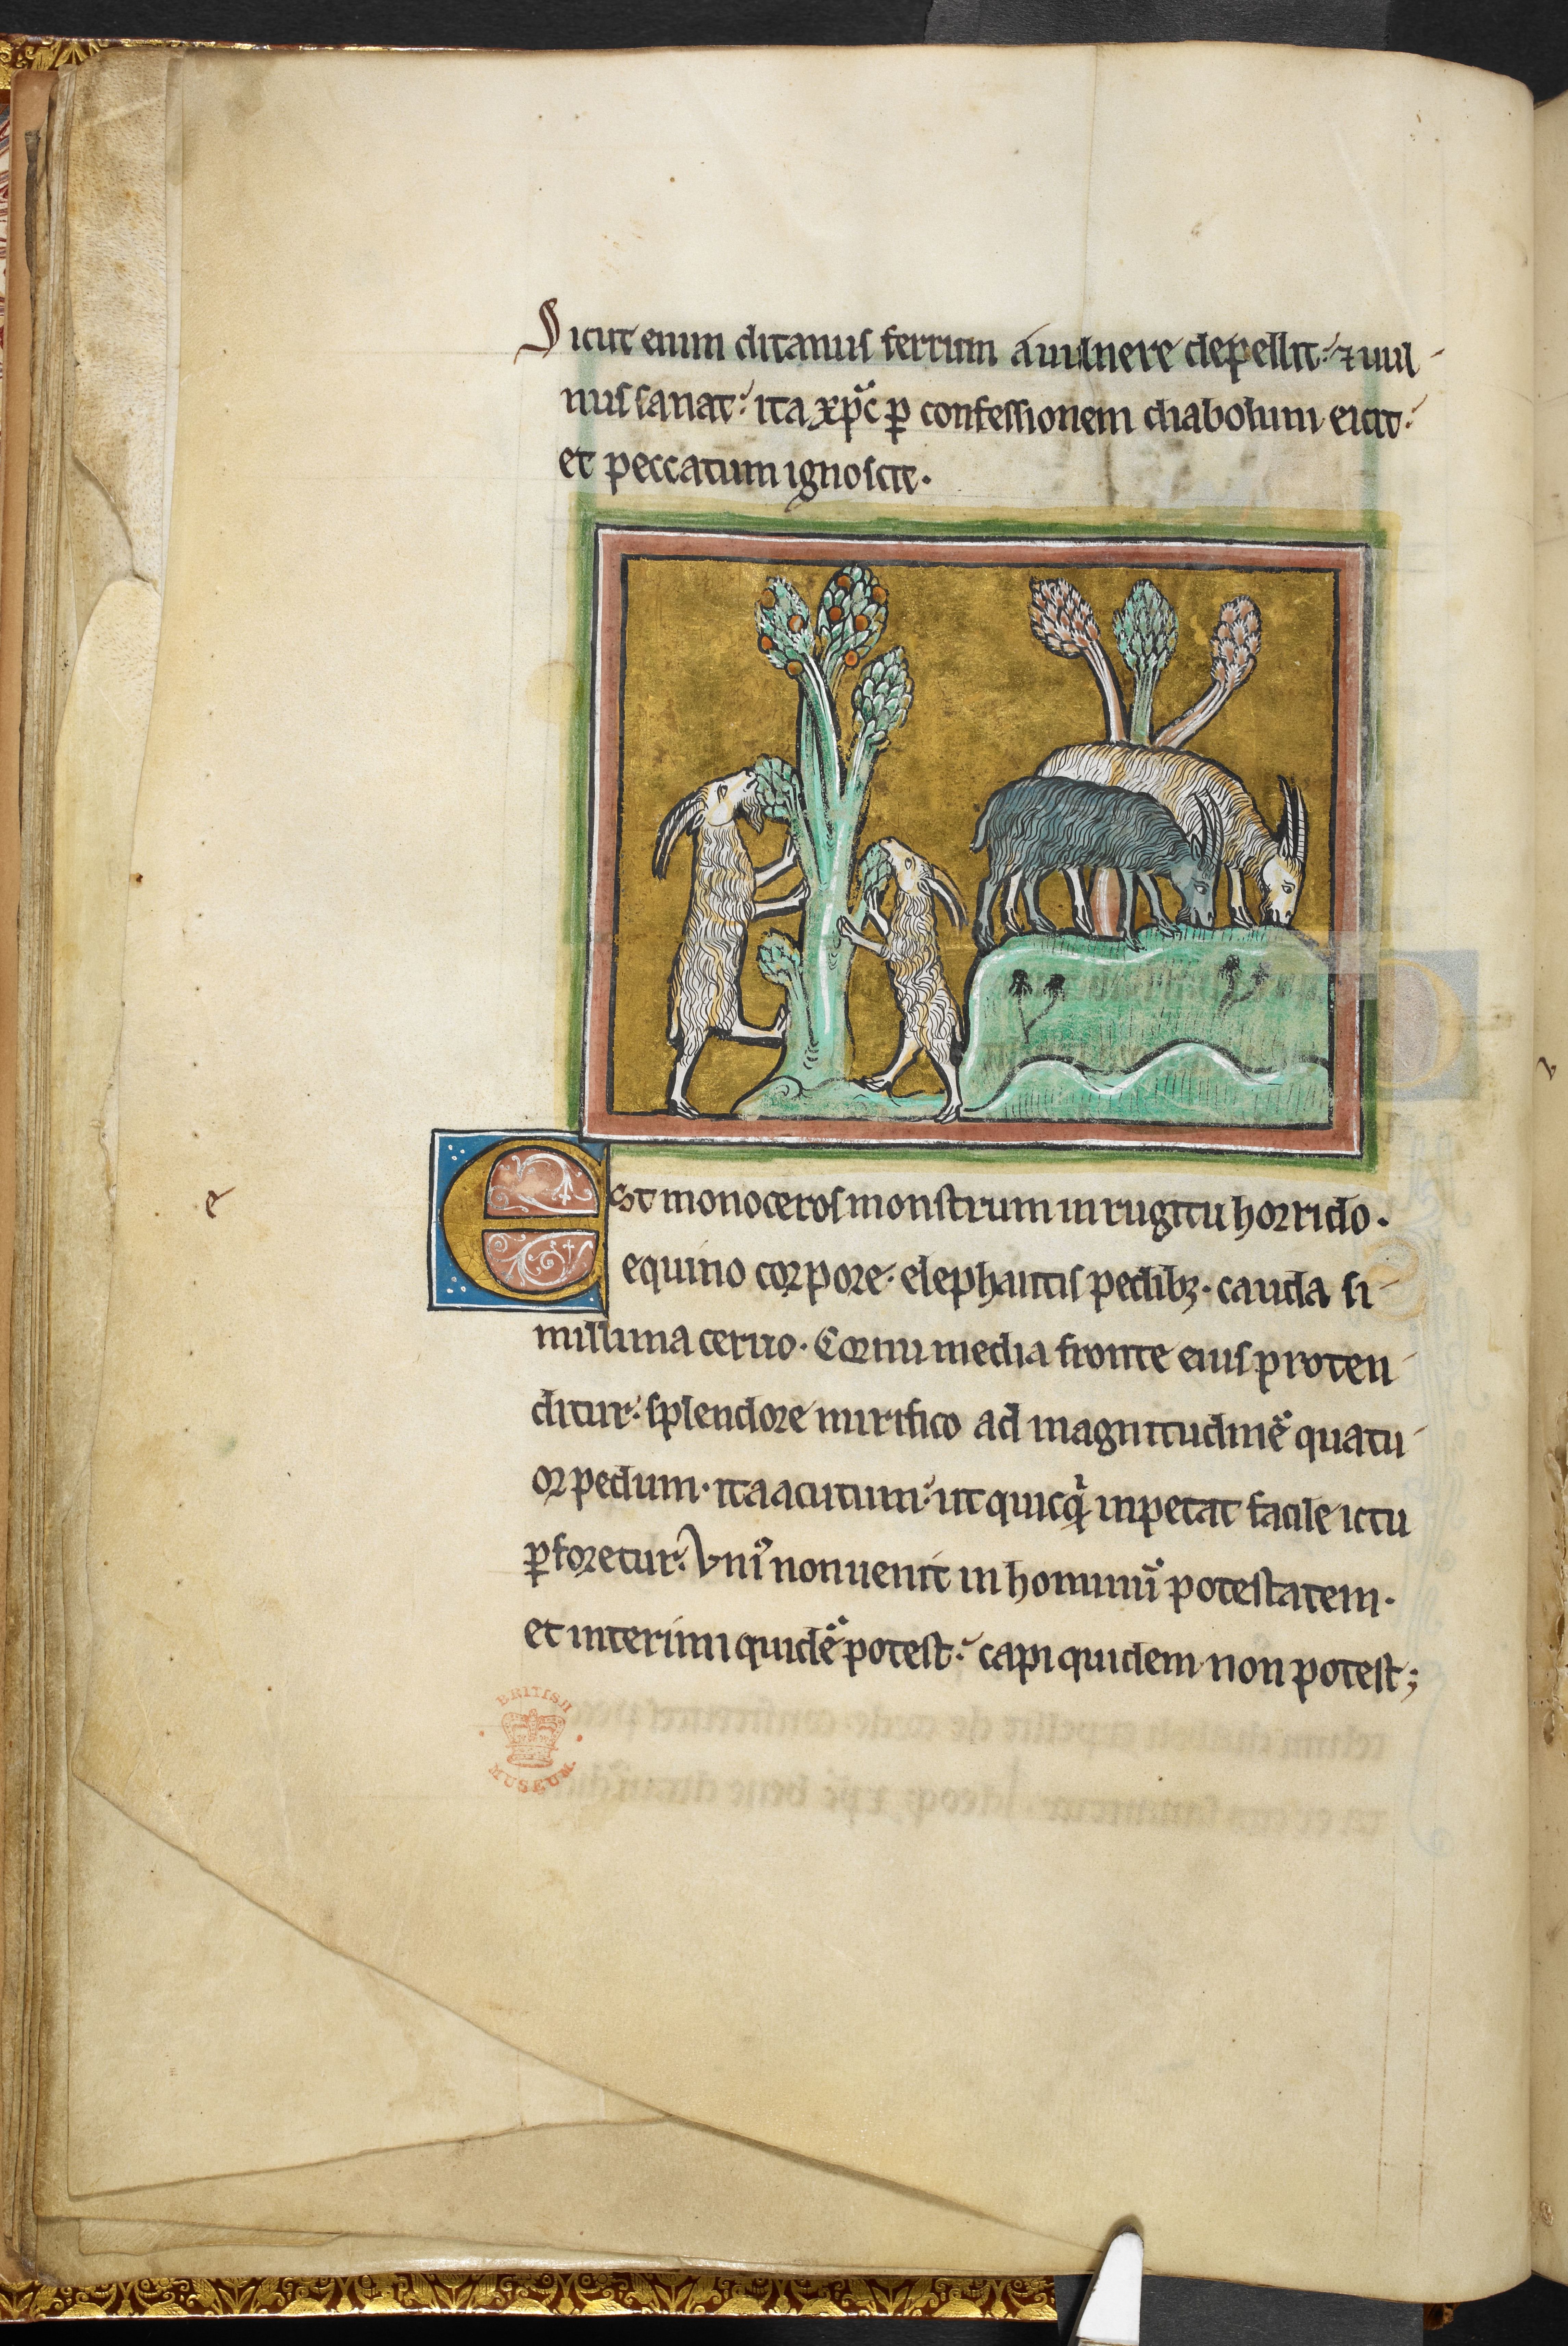 Sicut enim ditanus ferrum a uulnere depellit: ⁊ uul-
nus sanat: ita xp̄c ꝑ confessionem diabolum eicit:
et peccatum ignoscit.
e
Est monoceros monstrum in rugitu horrido.
equino corpore. elephantis pedibꝫ. cauda si-
millima ceruo. Cornu media fronte eius proten-
ditur: splendore mirifico ad magnitudinē quatu-
or pedum. ita acutum: ut quicꝗ̇d inpetat facile ictu
ꝑforetur. Vnꝰ non uenit in hominū potestatem.
et interimi quidē potest: capi quidem non potest;
BRITISH
MUSEUM